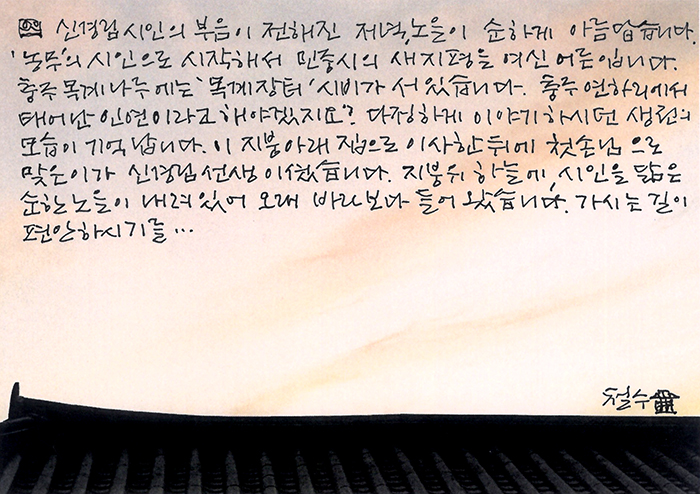 신경림 시인의 부음이 전해진 저녁, 노을이 순하게 아름답습니다.
'농무'의 시인으로 시작해서 민중시의 새 지평을 여신 어른입니다.
충주 목계나루에는 '목계장터' 시비가 서 있습니다. 충주 연하리에서
태어난 인연이라고 해야겠지요? 다정하게 이야기하시던 생전의
모습이 기억납니다. 이 지붕아래 집으로 이사한 뒤에 첫손님으로
맞은이가 신경림 선생이셨습니다. 지붕위 하늘에, 시인을 닮은
순한 노을이 내려있어 오래 바라보다 들어왔습니다. 가시는 길이
편안하시기를...
철수